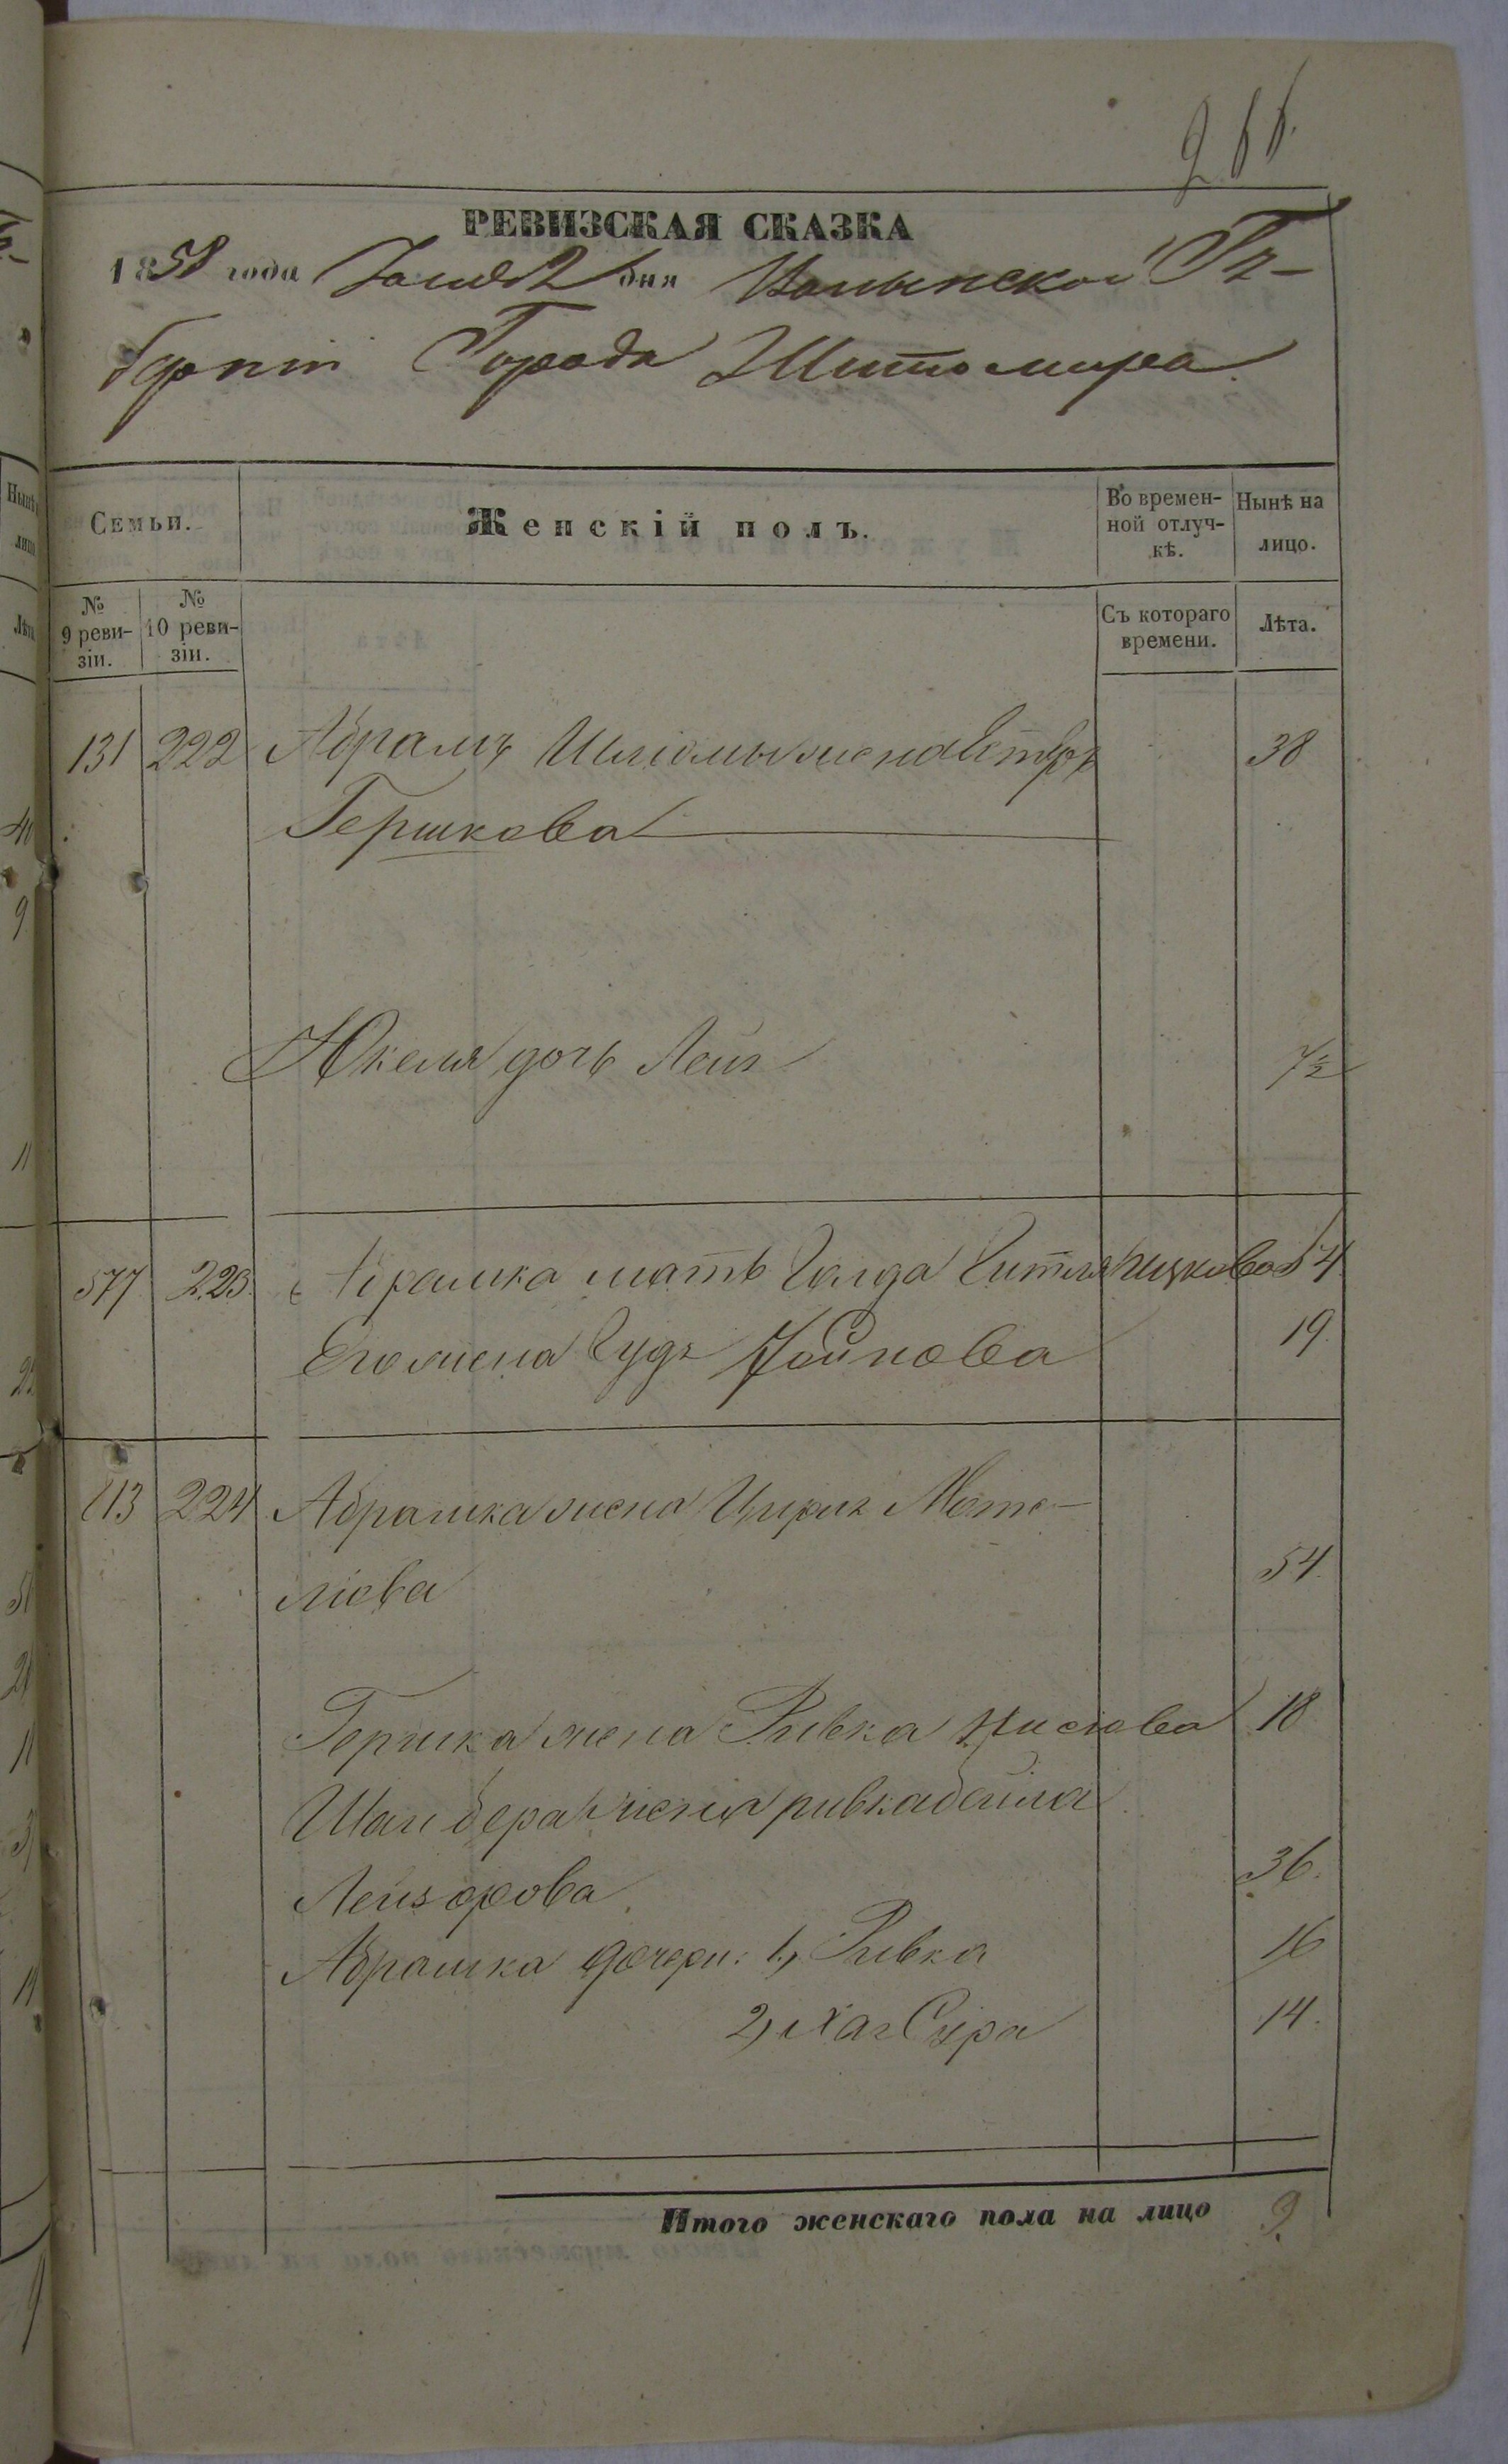 266.
РЕВИЗСКАЯ СКАЗКА
1858 года Іюня 2 дня Волынской Гу-
берніи Города Житомира.
Семьи.
Женскій полъ.
Во времен-
ной отлуч-
кѣ.
Нынѣ на
лицо.
№
9 реви-
зіи.
№
10 реви-
зіи.
Съ котораго
времени.
Лѣта.
131 222 Абрамъ Шліомы жена 38
Гершкова
Юкеля дочь Лея 1/2
577 223 Абрамка мать Голда Гитля Ицкова 54
Его жена Суда 19
113 224 Абрамка жена Цирля Моте-
ліова 54.
Гершка жена Ривка 18
жена ривка бейла
Лейзорова 36.
Абрамка дочери: 1, Ривка 16
2, Хая Сура 14.
Итого женскаго пола на лицо 9.